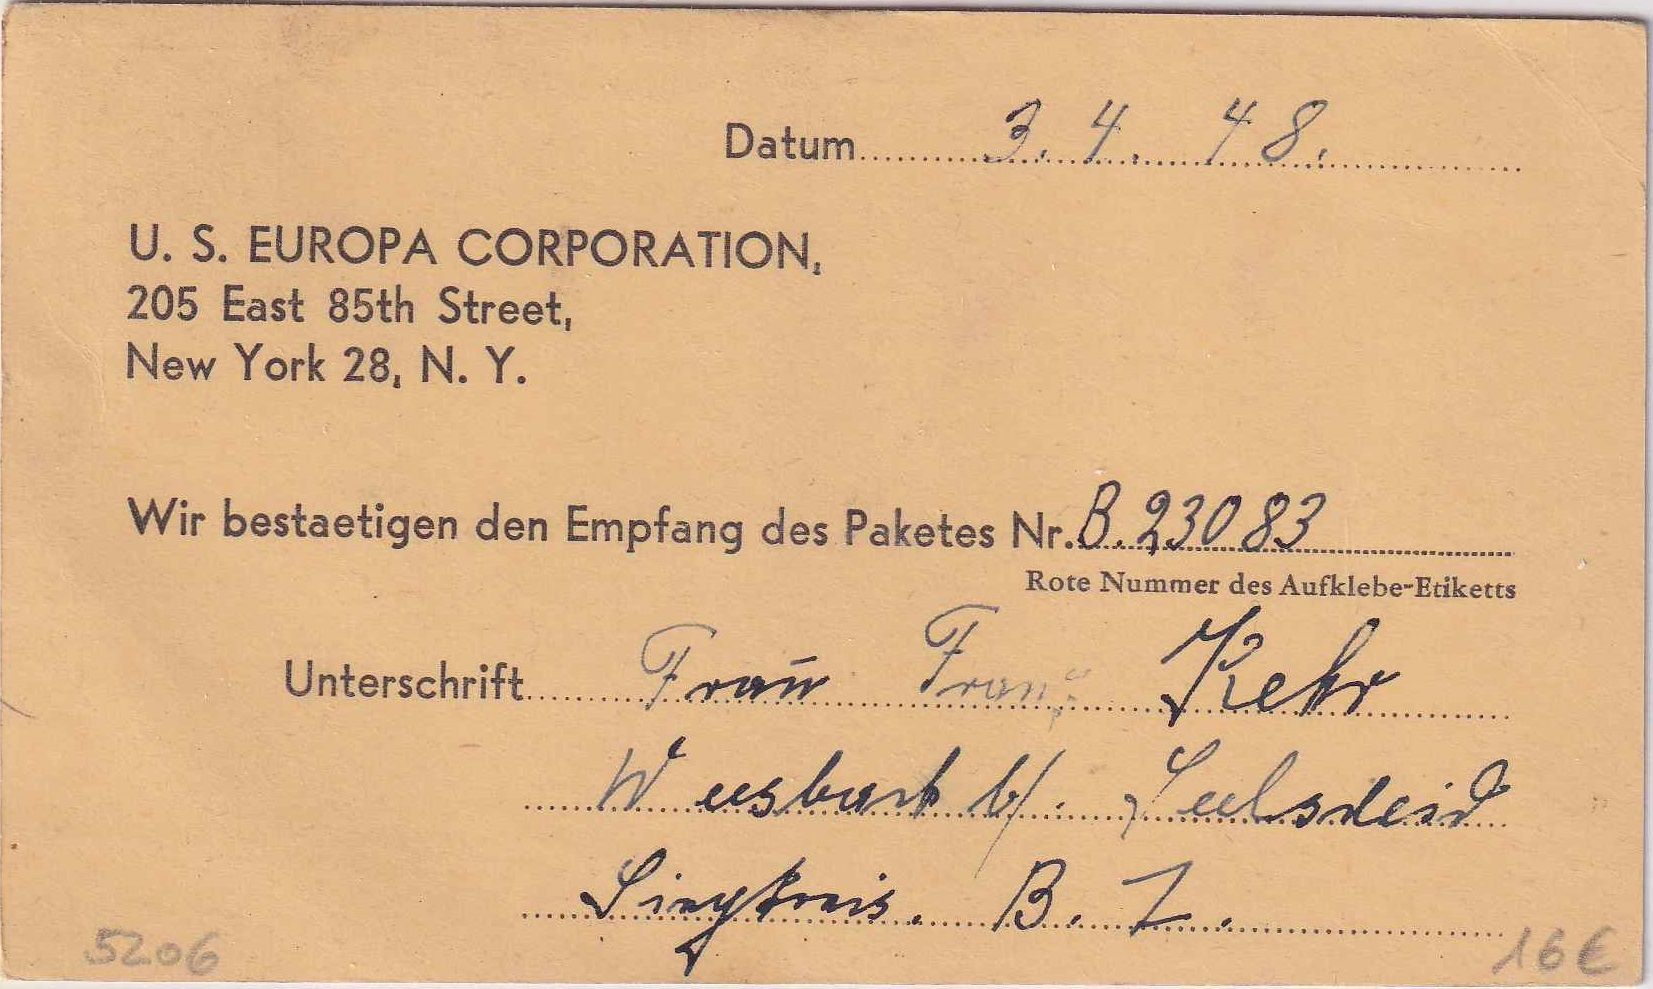 Datum 3. 4. 48.
U. S. EUROPA CORPORATION,
205 East 85th Street,
New York 28, N. Y.
Wir bestaetigen den Empfang des Paketes Nr. B. 23083
Rote Nummer des Aufklebe-Etiketts
Unterschrift Frau Franz Kehr
b/.
Siegkreis. B. Z.
5206
16€